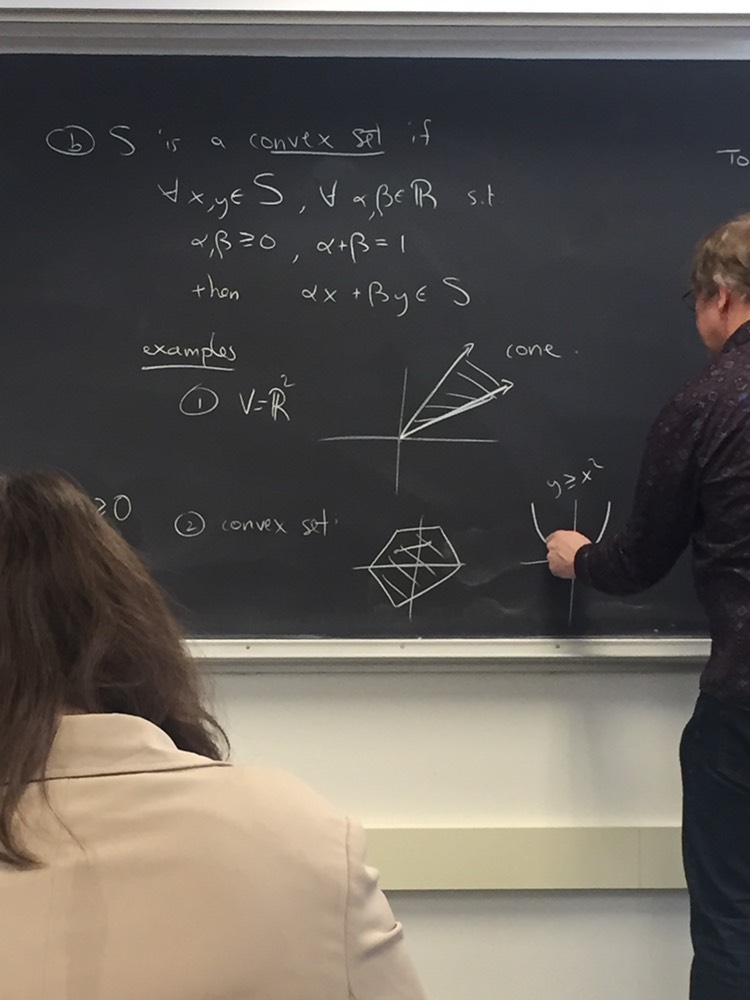 ⓑ S is a convex set if
∀ x,y ∈ S , ∀ α,β ∈ ℝ s.t
α,β ≥ 0 , α+β = 1
then αx + βy ∈ S
To
examples
cone.
① V=ℝ²
≥0
② convex set:
y ≥ x²